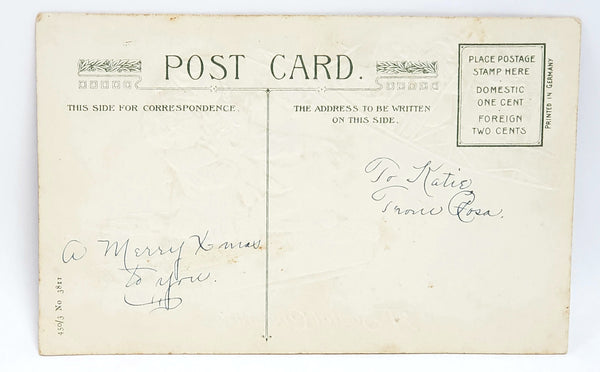 POST CARD.
THIS SIDE FOR CORRESPONDENCE.
THE ADDRESS TO BE WRITTEN
ON THIS SIDE.
PLACE POSTAGE
STAMP HERE
DOMESTIC
ONE CENT
FOREIGN
TWO CENTS
PRINTED IN GERMANY
To Katie,
From Rosa.
A Merry Xmas
to you.
430/3 No 3811